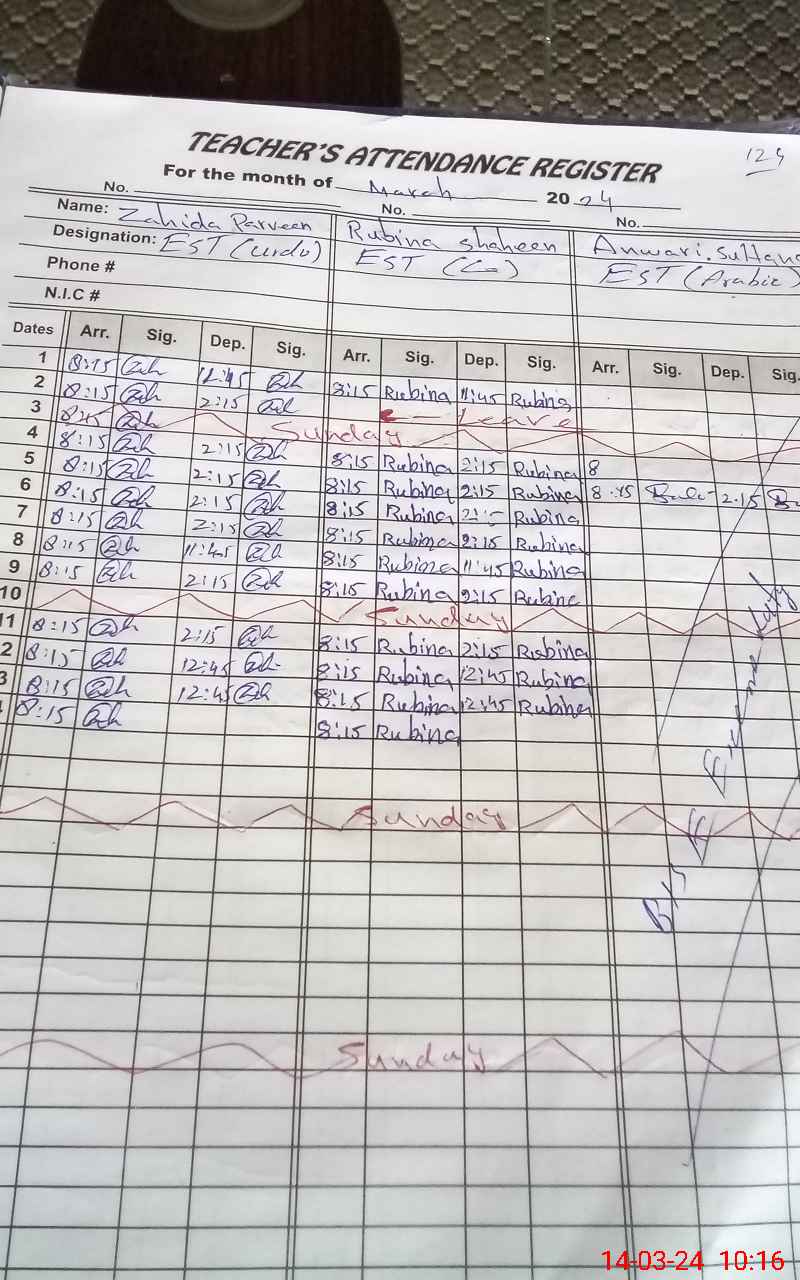 124
TEACHER'S ATTENDANCE REGISTER
For the month of March 2024
No. No. No.
Name: Zahida Parveen Rubina Shaheen Anwari. Sultana
Designation: EST (Urdu) EST EST (Arabic)
Phone #
N.I.C #
Dates Arr. Sig. Dep. Sig. Arr. Sig. Dep. Sig. Arr. Sig. Dep. Sig.
1 8:15 12:45 8:15 Rubina 11:45 Rubina
2 8:15 2:15 Leave
3 8:15 Sunday
4 8:15 2:15 8:15 Rubina 2:15 Rubina 8
5 8:15 2:15 8:15 Rubina 2:15 Rubina 8:15 2:15
6 8:15 2:15 8:15 Rubina Rubina
7 8:15 2:15 8:15 Rubina 2:15 Rubina
8 8:15 11:45 8:15 Rubina 11:45 Rubina
9 8:15 2:15 8:15 Rubina 2:15 Rubina
10 Sunday
11 8:15 2:15 8:15 Rubina 2:15 Rubina
2 8:15 12:45 8:15 Rubina 12:45 Rubina
3 8:15 12:45 8:15 Rubina 12:45 Rubina
8:15 8:15 Rubina
Sunday
Sunday
14-03-24 10:16